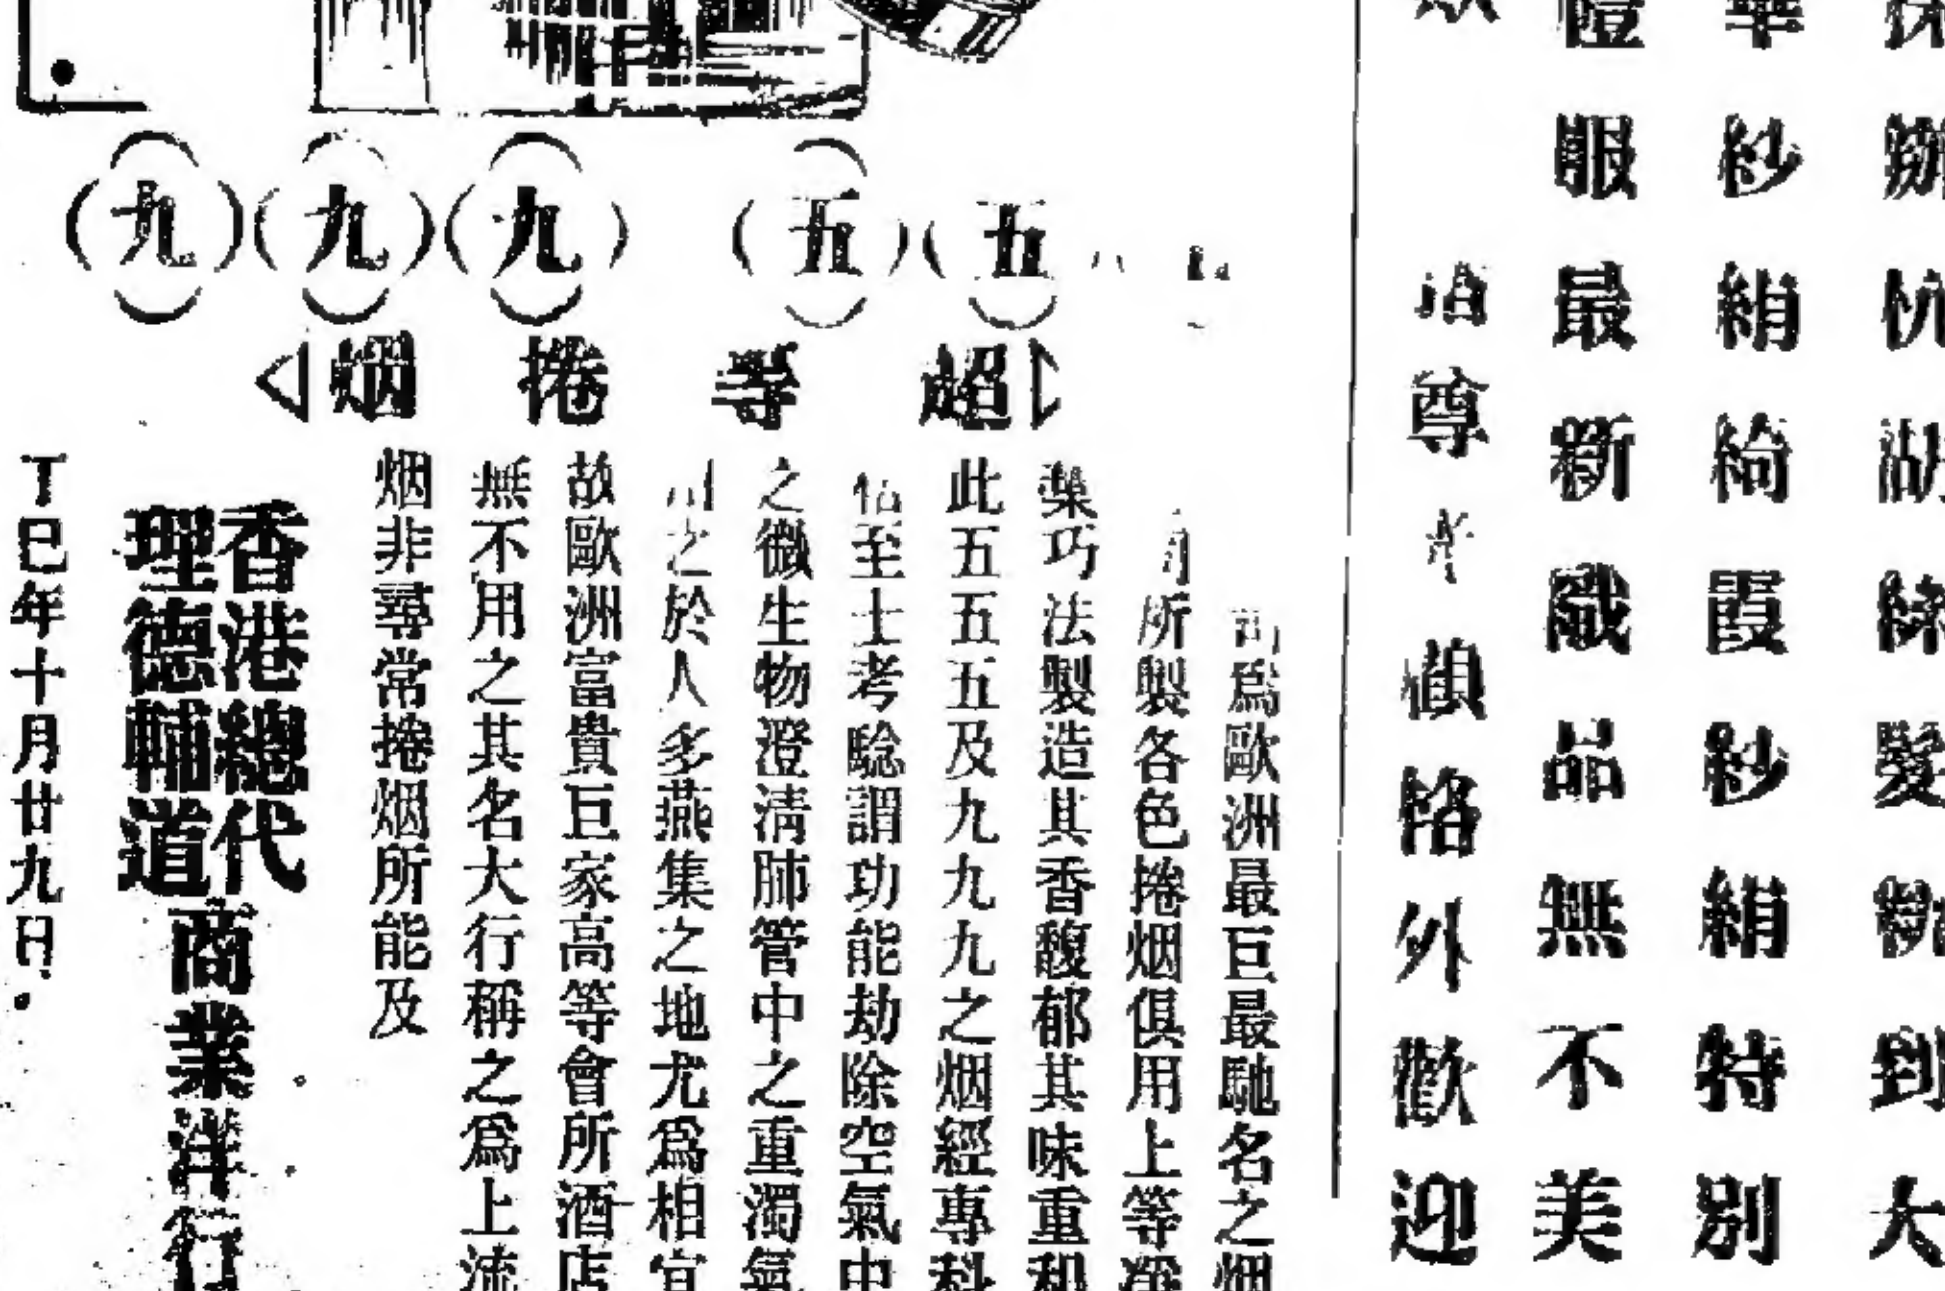 大
到
髮
湖
別
特
絹
紗
霞
綺
絹
紗
華
美
不
無
品
織
新
最
服
禮
尊
顧
格外歡迎
(五)(五) (九)(九)(九)
超等捲烟
爲歐洲最巨最馳名之烟
所製各色捲烟俱用上等
葉巧法製造其香馥郁其味重和
此五五五及九九九之烟經專科
至士考驗謂功能劫除空氣中
之微生物澄淸肺管中之重濁氣
之於人多燕集之地尤爲相宜
故歐洲富貴巨家高等會所酒店
無不用之其名大行稱之爲上流
烟非尋常捲烟所能及
香港總代
理德輔道
商業洋行
丁巳年十月廿九日